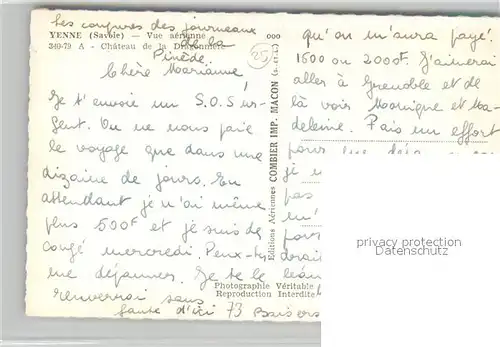 Les coupures des journeaux
de la
Pinède.
YENNE (Savoie) — Vue aérienne
349-79 A - Château de la Dragonnière
ooo
25
Chère Marianne
Je t'envoie un S.O.S ur-
gent. On ne nous paie
le voyage que dans une
dizaine de jours. En
attendant je n'ai même
plus 500F et je suis de
congé mercredi. Peux-tu
me dépanner. Je te le
renverrai sans
faute d'ici 73 Baisers
Editions Aériennes COMBIER IMP. MACON (S.-et-L.)
Photographie Véritable
Reproduction Interdite
qu'on m'aura payé.
1500 ou 2000F. J'aimerai
aller à Grenoble et de
là voir Monique et Ma-
deleine. Fais un effort
pour
je
pas
m'
pour
droit
privacy protection
Datenschutz